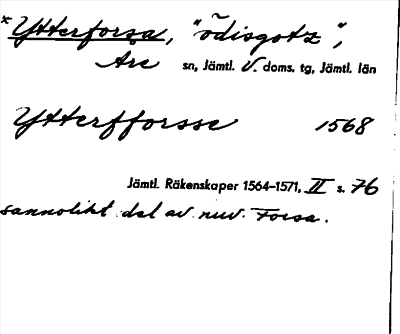 *Ytterforsa, "ödisgotz",
Åre sn, Jämtl. V. doms. tg, Jämtl. län
Ytterfforsse 1568
Jämtl. Räkenskaper 1564-1571, II s. 76
sannolikt del av nuv. Forsa.